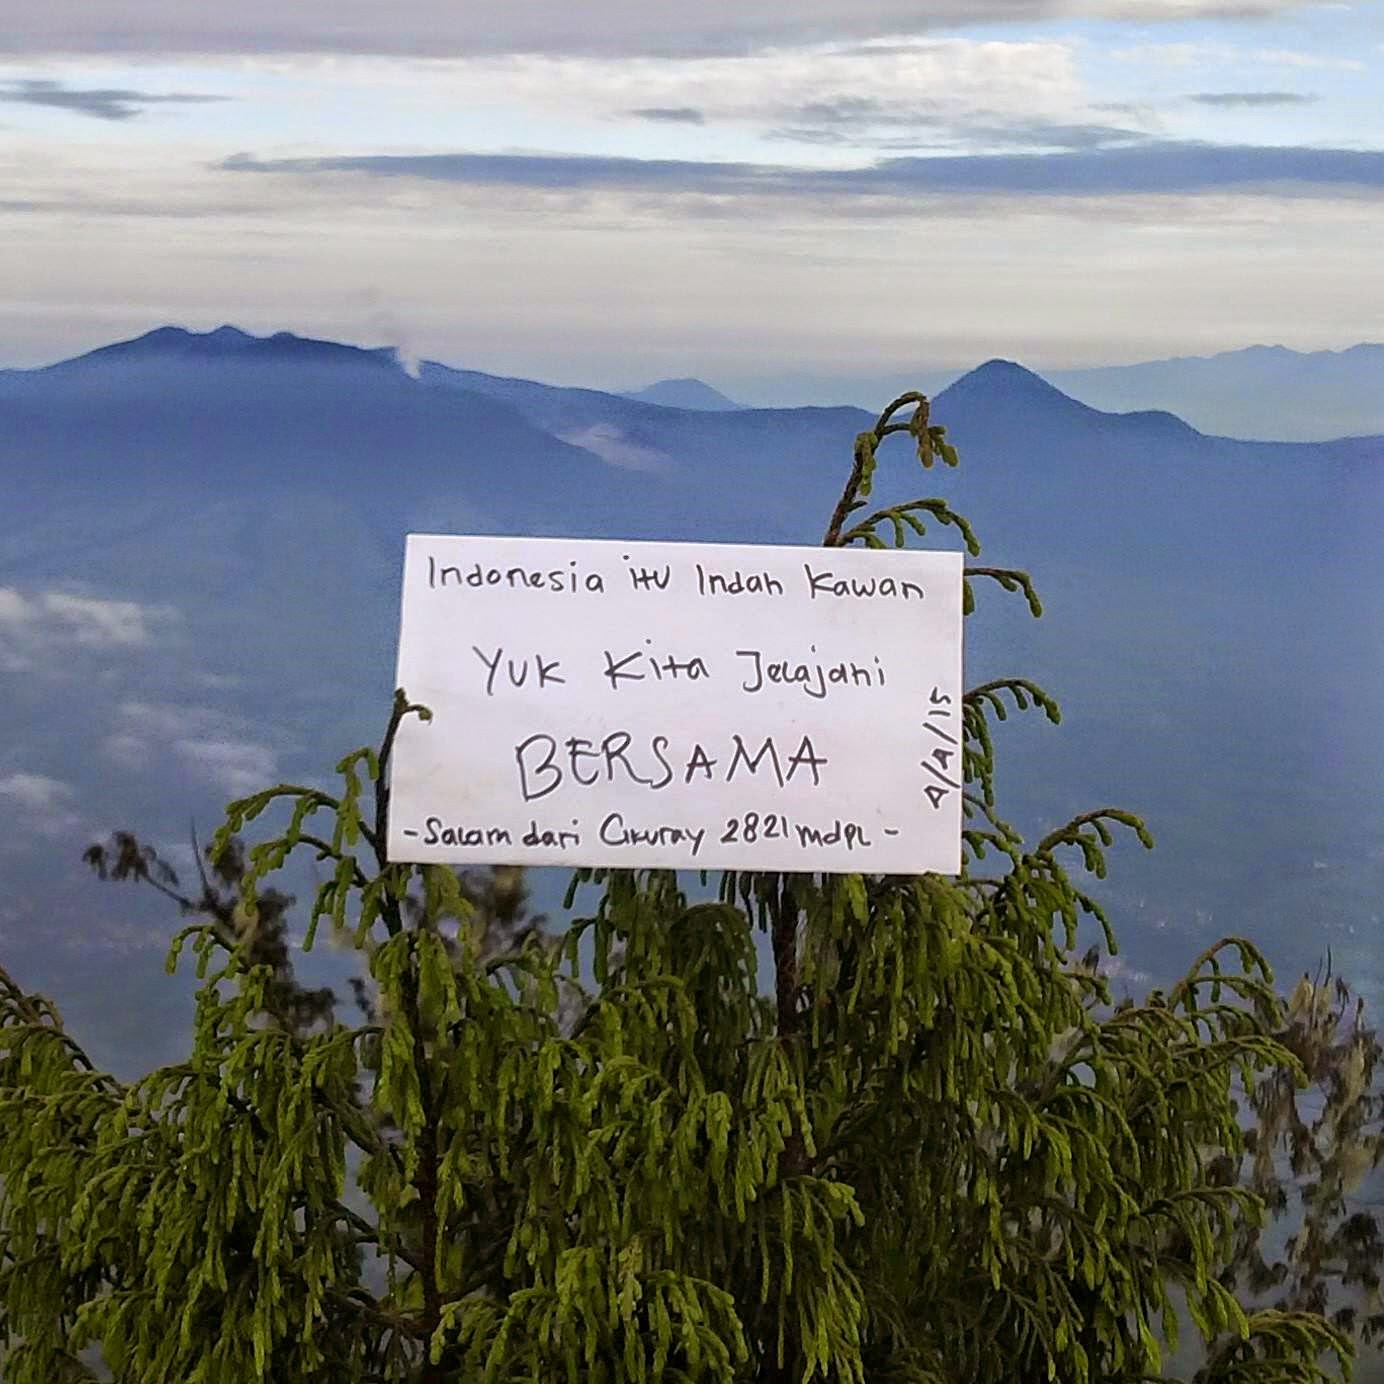 Indonesia itu Indah Kawan
Yuk Kita Jelajahi
BERSAMA
-Salam dari Cikuray 2821 mdpl-
4/4/15